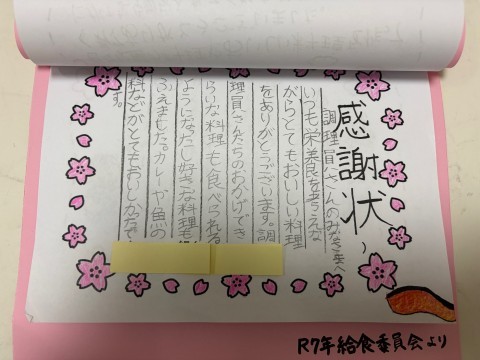 感謝状
調理員さんのみなさまへ
いつも栄養を考えな
がらとてもおいしい料理
をありがとうございます。調
理員さんたちのおかげでき
らいな料理も食べられる
ようになたし好きな料理も
ふえました。カレーや魚の
料などがとてもおいしかったで
す。
R7年給食委員会より